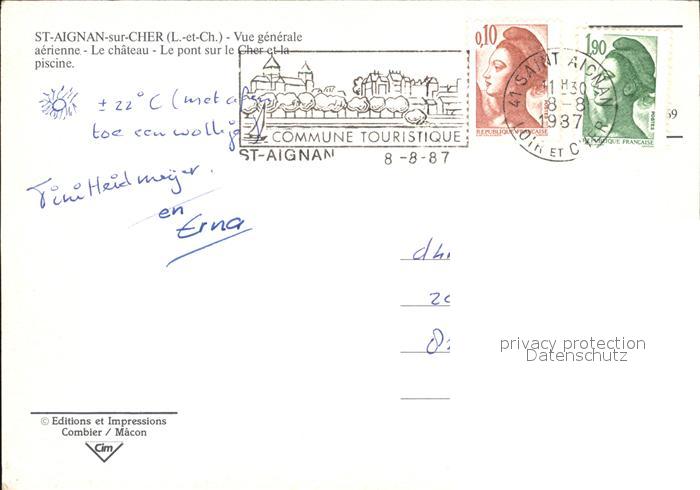 ST-AIGNAN-sur-CHER (L.-et-Ch.) - Vue générale
aérienne - Le château - Le pont sur le Cher et la
piscine.
0,10
REPUBLIQUE FRANCAISE
1,90
POSTES
REPUBLIQUE FRANÇAISE
41 SAINT AIGNAN
11 H 30
8-8
1987
LOIR ET CHER
59
± 22°C (met af en
toe een wolkje
COMMUNE TOURISTIQUE
ST-AIGNAN 8-8-87
Tini Heidmeijer.
en
Erna
privacy protection
Datenschutz
© Editions et Impressions
Combier / Mâcon
Cim